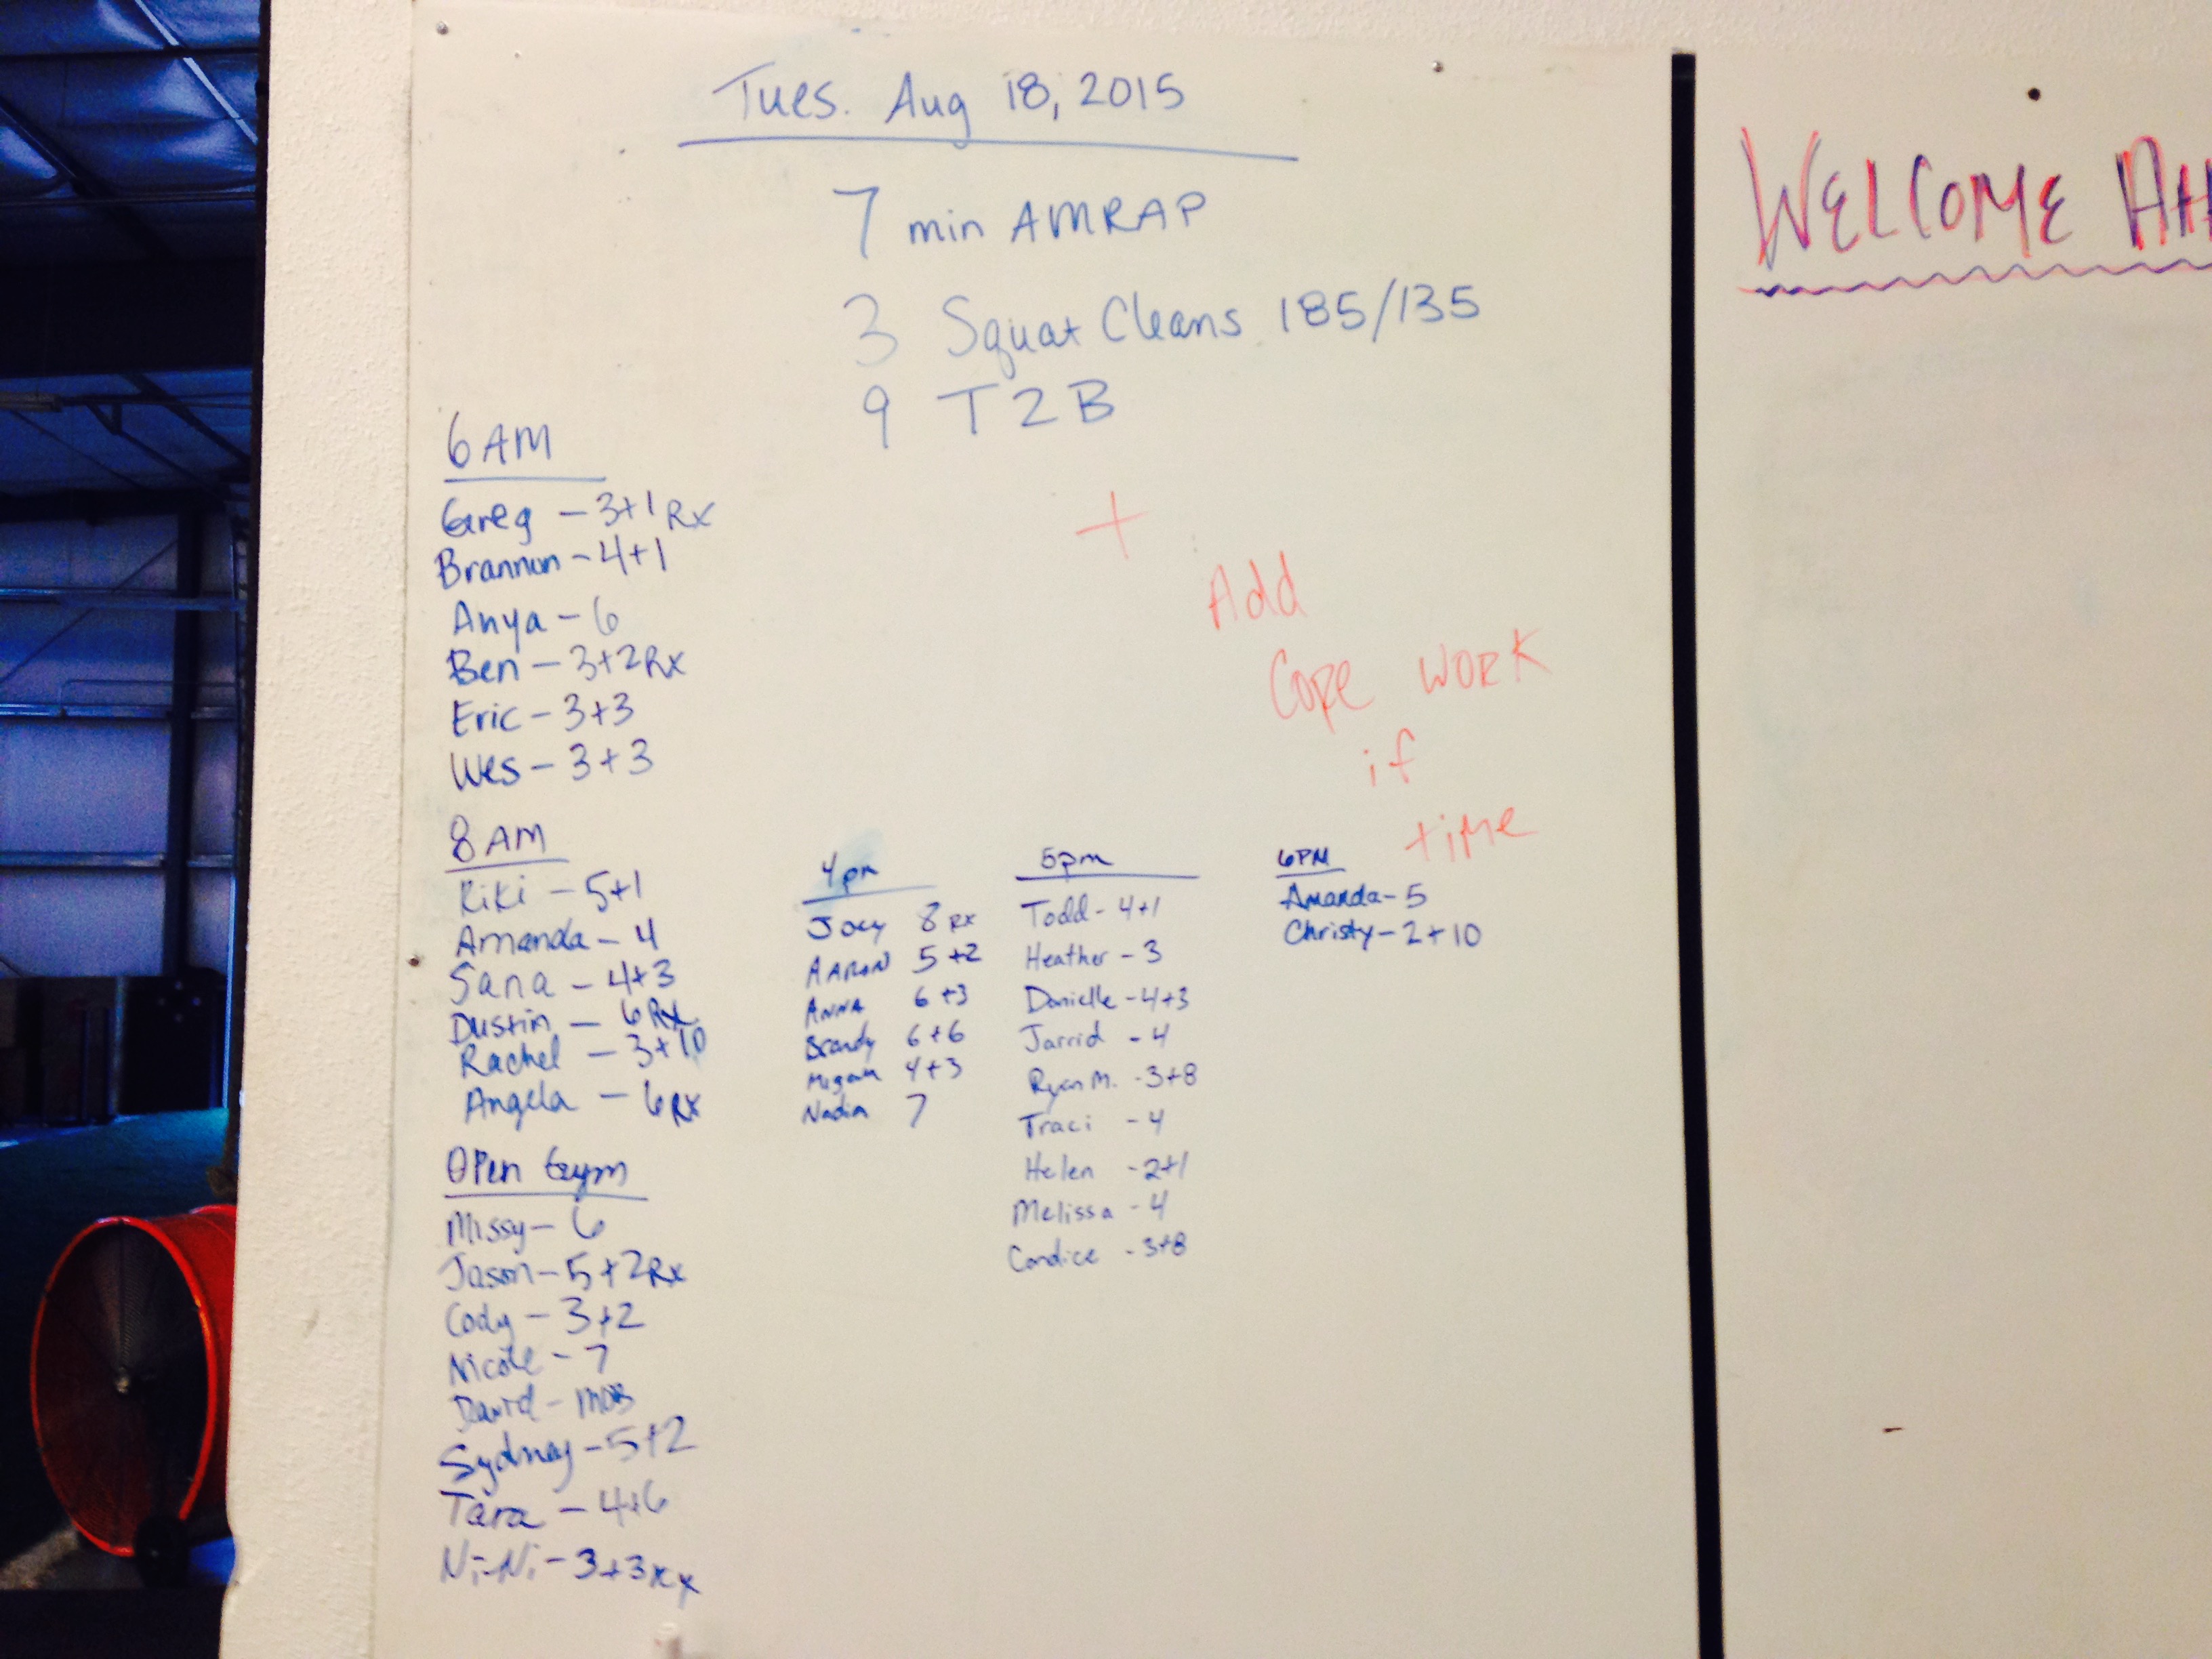 Tues. Aug 18, 2015
7 min AMRAP
3 Squat Cleans 185/135
9 T2B
+
Add
Core work
if
time
6AM
Greg - 3+1 Rx
Brannon - 4+1
Anya - 6
Ben - 3+2 Rx
Eric - 3+3
Wes - 3+3
8AM
Kiki - 5+1
Amanda - 4
Sana - 4+3
Dustin - 6 Rx
Rachel - 3+10
Angela - 6 Rx
Open Gym
Missy - 6
Jason - 5+2 Rx
Cody - 3+2
Nicole - 7
David - MOB
Sydney - 5+2
Tara - 4+6
Ni-Ni - 3+3 Rx
4pm
Joey 8 Rx
AARON 5+2
ANNA 6+3
Brandy 6+6
Megan 4+3
Nadia 7
5pm
Todd - 4+1
Heather - 3
Danielle - 4+3
Jarrid - 4
Ryan M. - 3+8
Traci - 4
Helen - 2+1
Melissa - 4
Candice - 3+8
6PM
Amanda - 5
Christy - 2+10
WELCOME